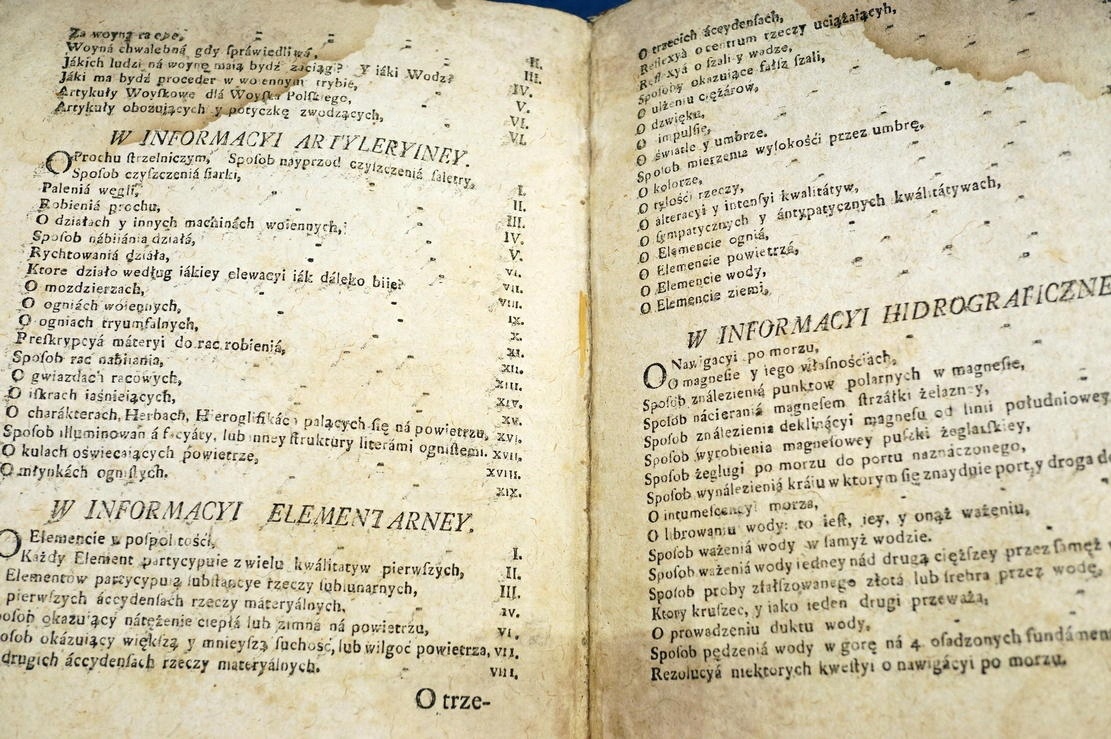 Za woyną
II.
Woyná chwalebná gdy spráwiedliwá,
III.
Jákich ludzi ná woynę máią bydź záciągi? y iáki Wodz?
IV.
Jáki ma bydź proceder w woiennym trybie,
V.
Artykuły Woyskowe dlá Woyska Polskiego,
VI.
Artykuły obozuiących y potyczkę zwodzących,
VI.
W INFORMACYI ARTYLERYINEY.
O Prochu strzelniczym, Sposob nayprzod czyszczenia saletry,
I.
Sposob czyszczenia siarki,
II.
Palenia węgli,
III.
Robienia prochu,
IV.
O działach y innych machinách woiennych,
V.
Sposob nábiiánia działá,
VI.
Rychtowania działa,
VII.
Ktore działo według iákiey elewacyi iák dáleko biie?
VIII.
O mozdzierzach,
IX.
O ogniách woiennych,
X.
O ogniach tryumfalnych,
XI.
Preskrypcyá máteryi do rac robieniá,
XII.
Sposob rac nabiiania,
XIII.
O gwiazdach racowych,
XIV.
O iskrach iaśnieiących,
XV.
O charákterach, Herbach, Hieroglifikách palących się ná powietrzu,
XVI.
Sposob illuminowaniá facyáty, lub inney struktury literámi ognistemi.
XVII.
O kulach oświecaiących powietrze,
XVIII.
O młynkách ognistych.
XIX.
W INFORMACYI ELEMENTARNEY.
O Elemencie w pospolitości,
I.
Każdy Element partycypuie z wielu kwálitatyw pierwszych,
II.
Elementow partycypuią substancye rzeczy sublunarnych,
III.
pierwszych áccydensach rzeczy máteryálnych,
IV.
posob okazuiący nátężenie ciepłá lub zimná ná powietrzu,
VI.
osob okázuiący większą y mnieyszą suchość, lub wilgoć powietrza,
VII.
drugich áccydensach rzeczy materyálnych.
VIII.
O trze-
O trzecich áccydensach,
Reflexyá o centrum rzeczy uciążáiącyh,
Reflexyá o szali y wadze,
Sposoby okazuiące fałsz szali,
O ulżeniu ciężárow,
O dzwięku,
O impulsie,
O świátle y umbrze.
Sposob mierzenia wysokości przez umbrę,
O kolorze,
O tęgości rzeczy,
O alteracyi y intensyi kwalitátyw,
O sympatycznych y ántypatycznych kwálitátywach,
O Elemencie ogniá,
O Elemencie powietrzá,
O Elemencie wody,
O Elemencie ziemi,
W INFORMACYI HIDROGRAFICZNE
O Nawigacyi po morzu,
O magnesie y iego własnościách,
Sposobználezieniá punktow polarnych w magnesie,
Sposob nácierania magnesem strzáłki żelazney,
Sposob ználezienia deklinácyi magnesu od linii południowey
Sposob wyrobienia magnesowey puszki żeglarskiey,
Sposob żeglugi po morzu do portu naznáczonego,
Sposob wynálezieniá kráiu w ktorym się znayduie port, y droga do
O intumescencyi morza,
O librowaniu wody: to iest, iey, y onąż ważeniu,
Sposob ważenia wody w samyż wodzie.
Sposob ważeniá wody iedney nád drugą cięższey przez samęż
Sposob proby zfałszowanego złotá lub srebra przez wodę,
Ktory kruszec, y iako ieden drugi przeważa,
O prowadzeniu duktu wody,
Sposob pędzenia wody w gorę ná 4. osadzonych fundámen
Rezolucyá niektorych kwestyi o nawigácyi po morzu.